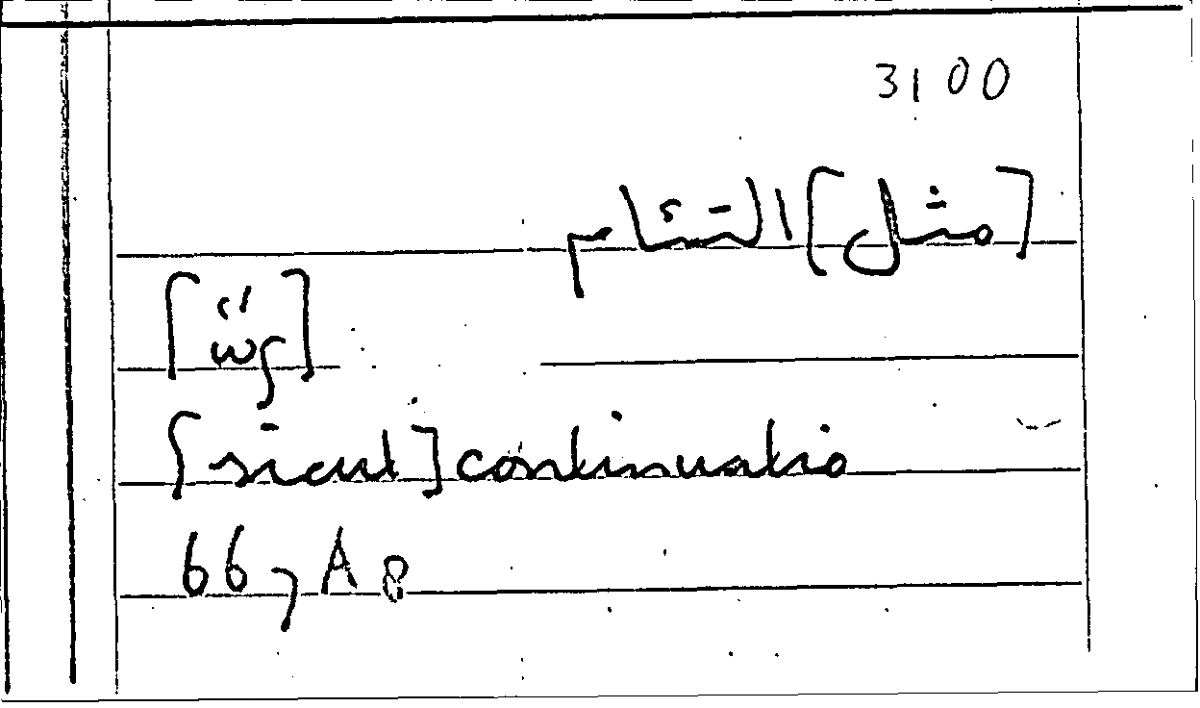 3100
[مثل] التئام
[ὥς]
[sicut] continuatio
66, A 8